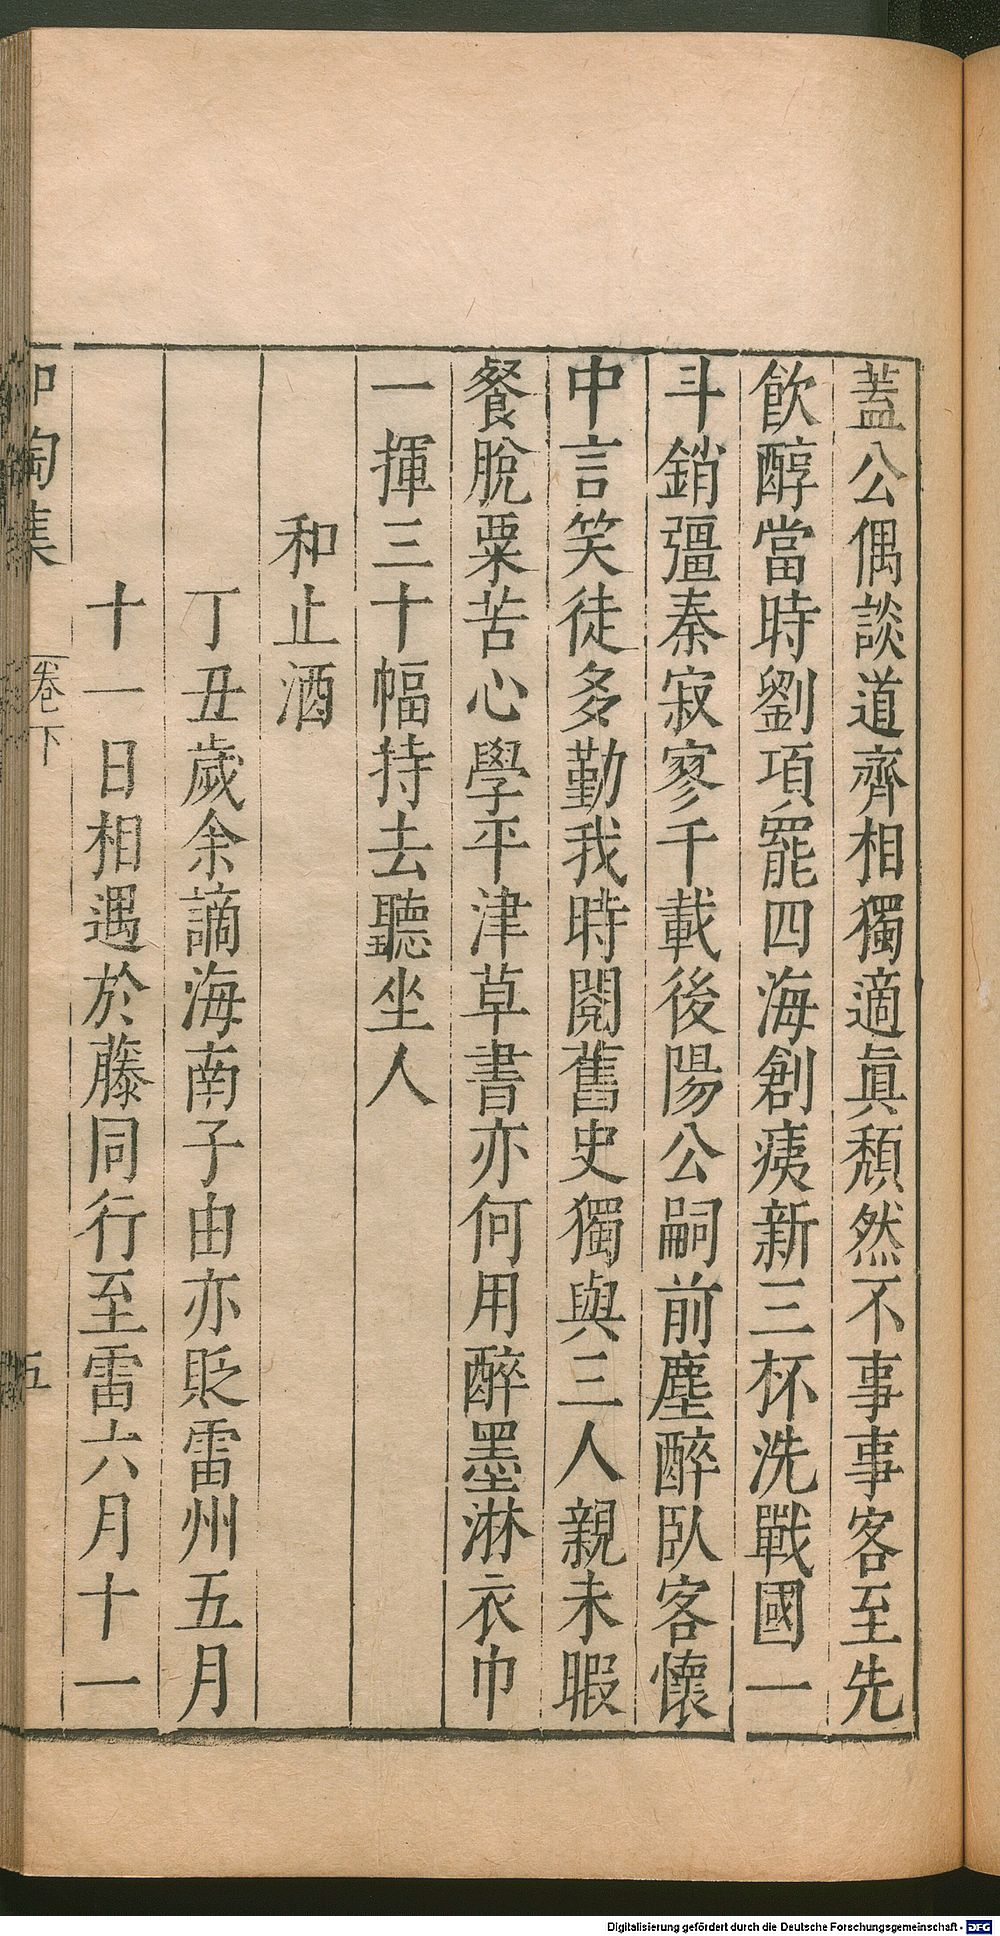 蓋公偶談道齊相獨適眞頹然不事事客至先
飲醇當時劉項罷四海創痍新三杯洗戰國一
斗銷彊秦寂寥千載後陽公嗣前塵醉臥客懷
中言笑徒多勤我時閱舊史獨與三人親未暇
餐脫粟苦心學平津草書亦何用醉墨淋衣巾
一揮三十幅持去聽坐人
和止酒
丁丑歲余謫海南子由亦貶雷州五月
十一日相遇於藤同行至雷六月十一
和陶集
卷下
五
Digitalisierung gefördert durch die Deutsche Forschungsgemeinschaft - DFG